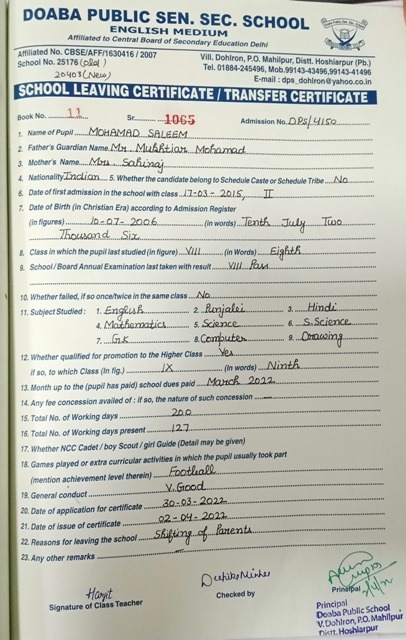 DOABA PUBLIC SEN. SEC. SCHOOL
ENGLISH MEDIUM
Affiliated to Central Board of Secondary Education Delhi
Affiliated No. CBSE/AFF/1630416 / 2007
School No. 25176 (old)
20403 (New)
Vill. Dohlron, P.O. Mahilpur, Distt. Hoshiarpur (Pb.)
Tel. 01884-245496, Mob.99143-43496,99143-41496
E-mail : dps_dohlron@yahoo.co.in
SCHOOL LEAVING CERTIFICATE / TRANSFER CERTIFICATE
Book No. 11 Sr. 1065 Admission No. DPS/4150
1. Name of Pupil MOHAMAD SALEEM
2. Father's Guardian Name Mr. Mukhtiar Mohamad
3. Mother's Name Mrs.
4. Nationality Indian 5. Whether the candidate belong to Schedule Caste or Schedule Tribe No
6. Date of first admission in the school with class 17-03-2015, II
7. Date of Birth (in Christian Era) according to Admission Register
(in figures) 10-07-2006 (in words) Tenth July Two
Thousand Six
8. Class in which the pupil last studied (in figure) VIII (in Words) Eighth
9. School / Board Annual Examination last taken with result VIII Pass
10. Whether failed, if so once/twice in the same class No
11. Subject Studied : 1. English 2. Punjabi 3. Hindi
4. Mathematics 5. Science 6. S.Science
7. G.K 8. Computer 9. Drawing
12. Whether qualified for promotion to the Higher Class Yes
if so, to which Class (In fig.) IX (In words) Ninth
13. Month up to the (pupil has paid) school dues paid March 2022
14. Any fee concession availed of : if so, the nature of such concession —
15. Total No. of Working days 200
16. Total No. of Working days present 127
17. Whether NCC Cadet / boy Scout / girl Guide (Detail may be given)
18. Games played or extra curricular activities in which the pupil usually took part
(mention achievement level therein) Football
19. General conduct V.Good
20. Date of application for certificate 30-03-2022
21. Date of issue of certificate 02-04-2022
22. Reasons for leaving the school Shifting of Parents
23. Any other remarks —
Signature of Class Teacher
Checked by
Principal
Principal
Doaba Public School
V. Dohlron, P.O. Mahilpur
Distt. Hoshiarpur